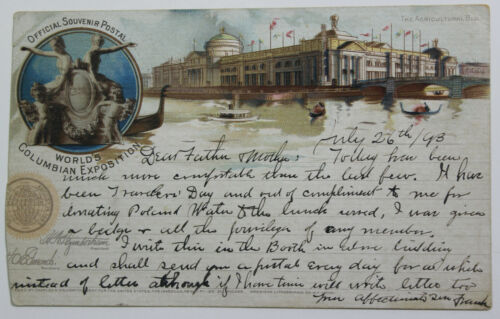 OFFICIAL SOUVENIR POSTAL
THE AGRICULTURAL BLD
WORLD'S
COLUMBIAN EXPOSITION
July 26th/93
Dear Father & Mother, Today has been
much more comfortable than the last few. I have
been Travelers' Day and out of compliment to me for
donating Poland Water to the lunch served, I was given
a badge & all the privileges of any member.
I write this in the Booth in above building
and shall send you a postal every day for a while
instead of letter although if I have time will write letter too
Your affectionate son Frank